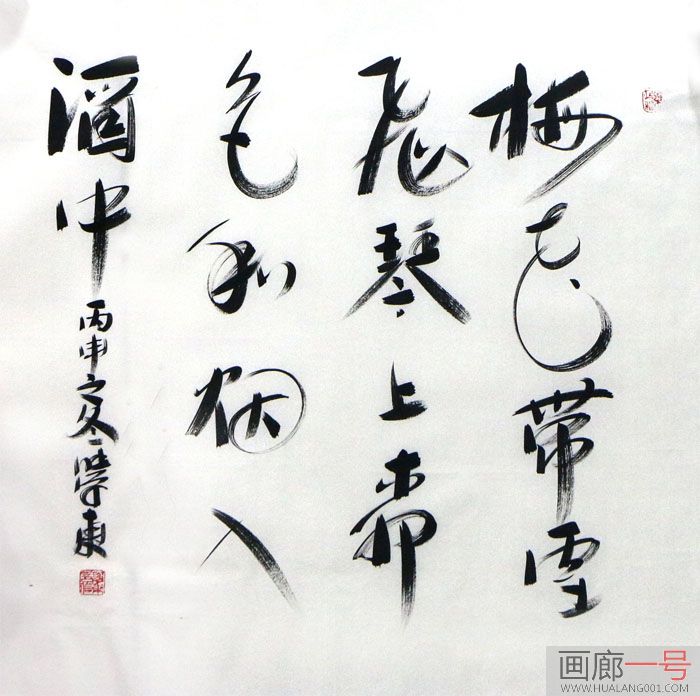 梅花帶雪
飛琴上柳
色和烟入
酒中
丙申之冬學東
画廊一号
WWW.HUALANG001.COM